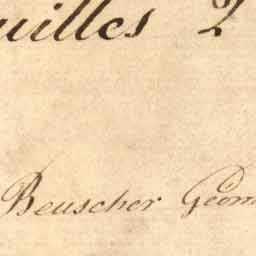 uilles 2
Beuscher Géom